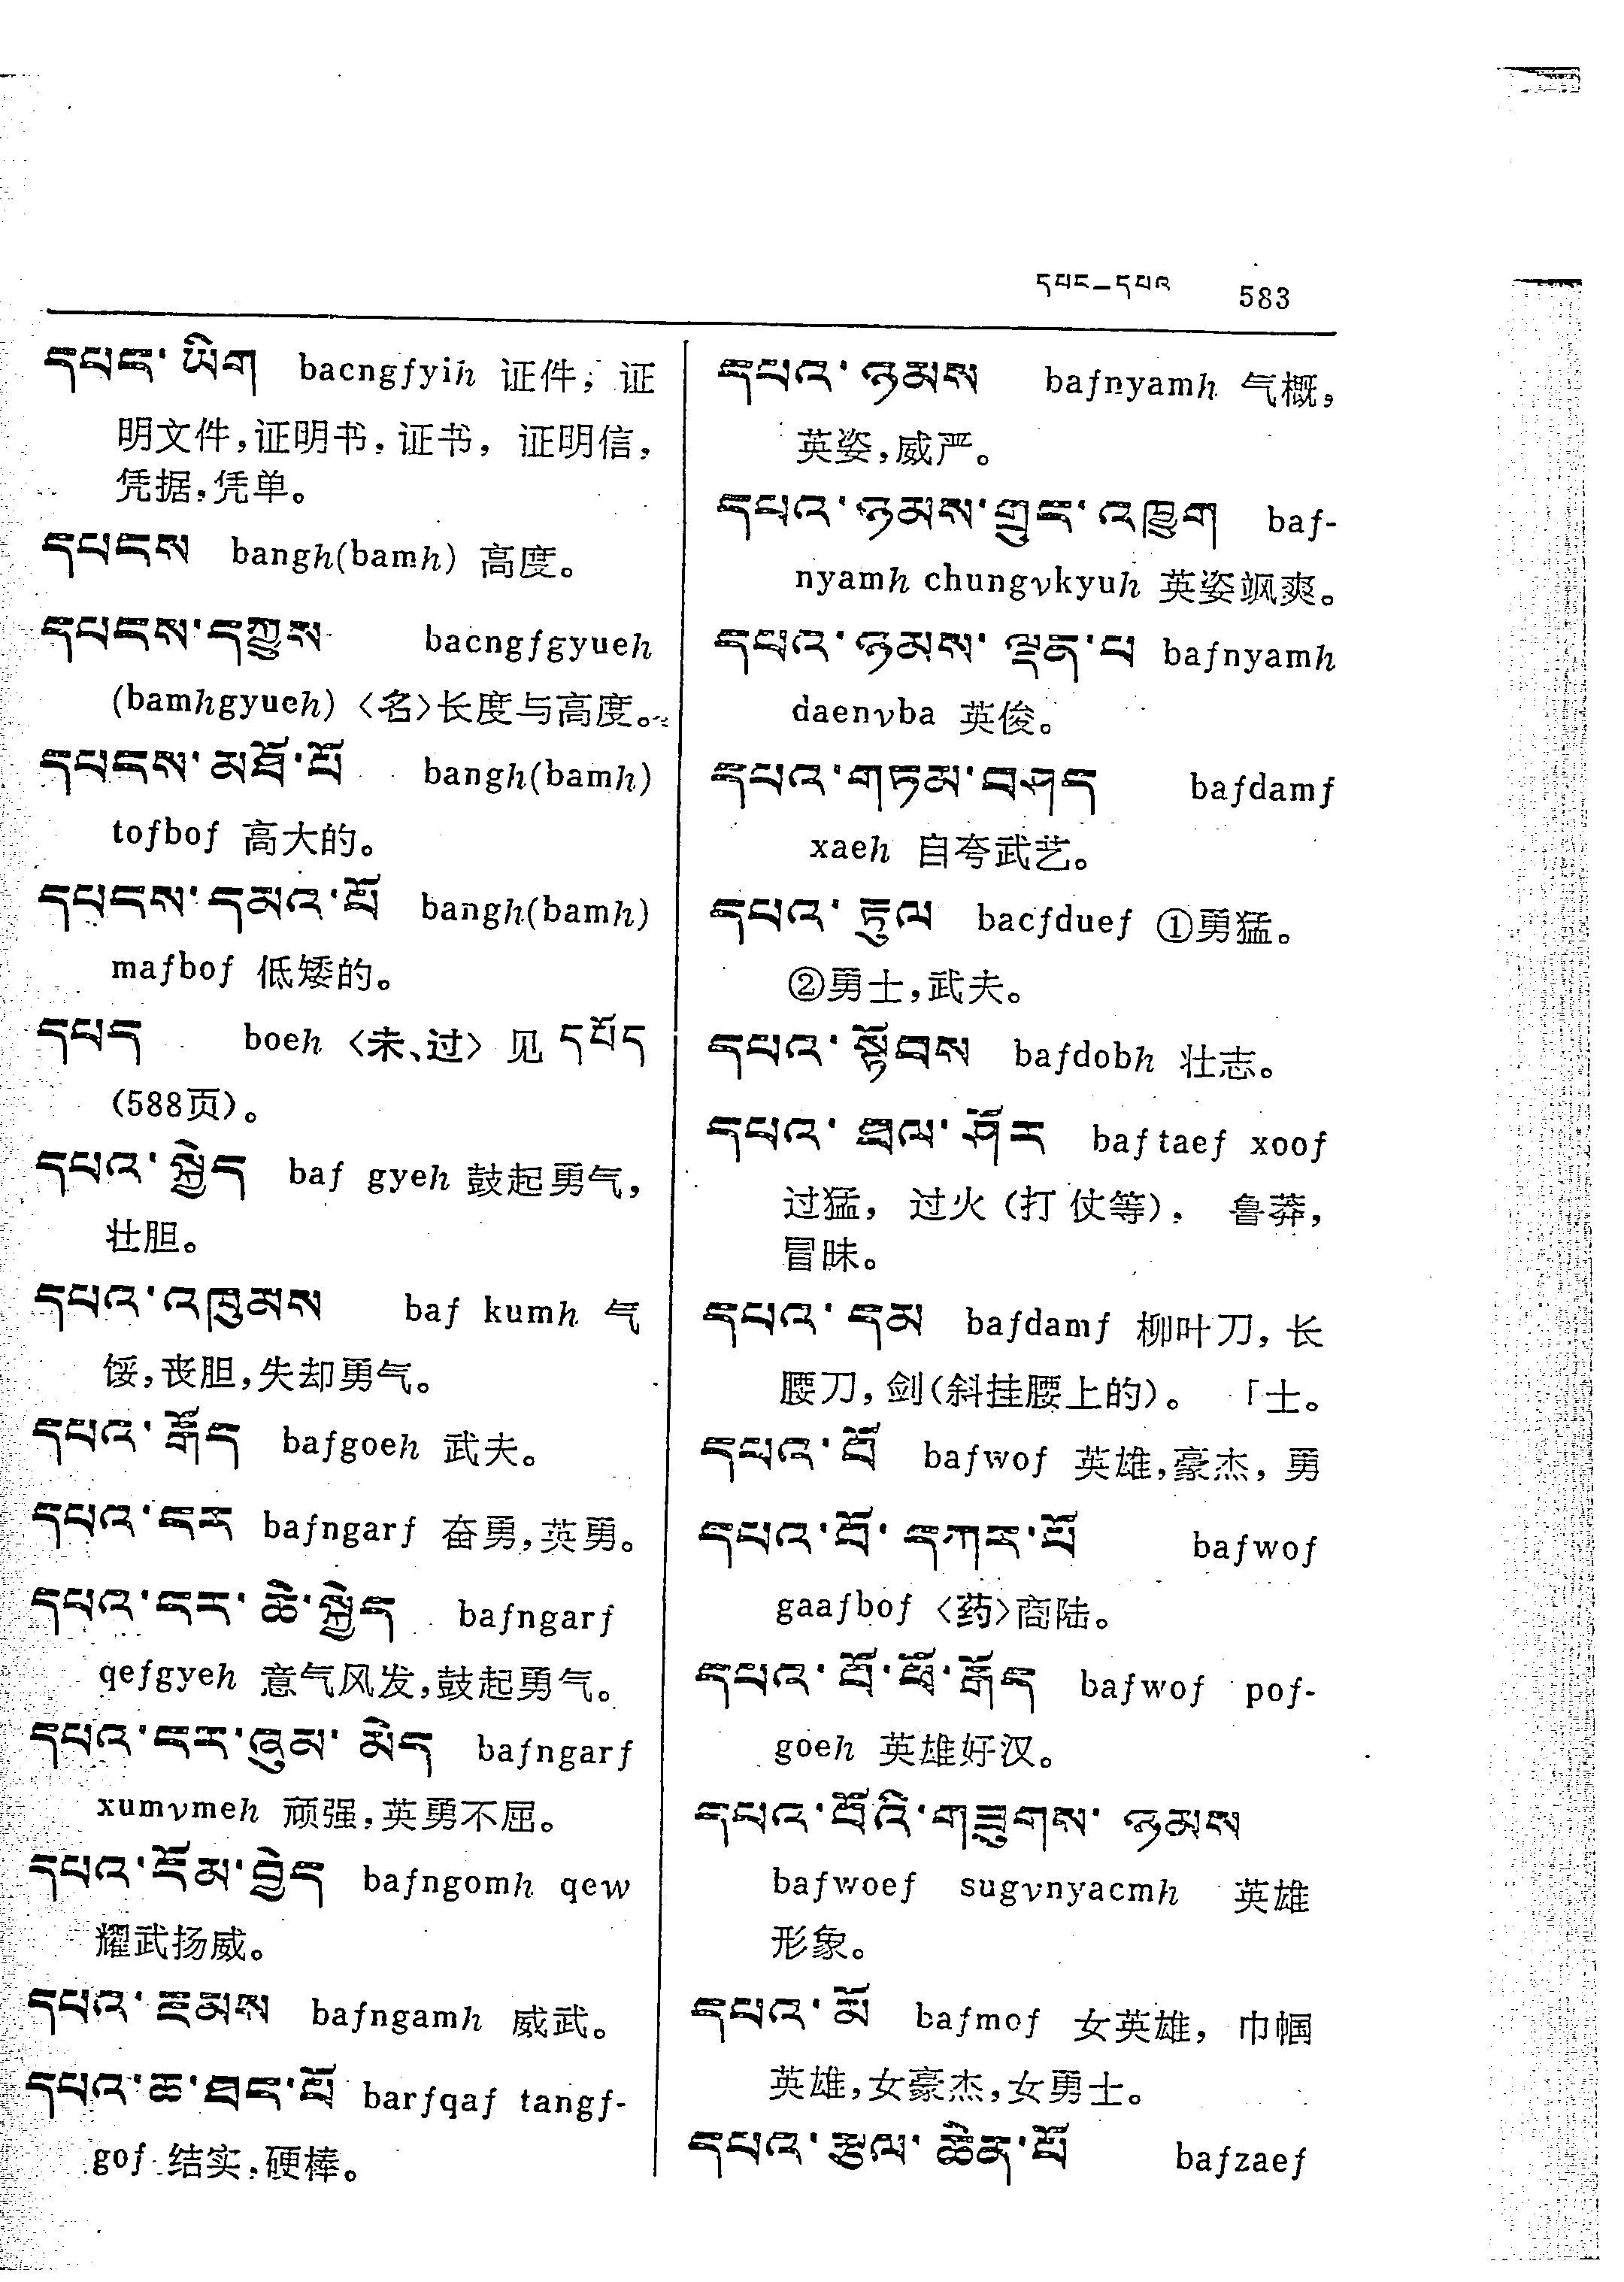 དཔང–དཔའ 583
དཔང་ཡིག bacngfyih 证件, 证
明文件,证明书,证书, 证明信,
凭据,凭单。
དཔངས bangh(bamh) 高度。
དཔངས་དཀྱུས bacngfgyueh
(bamhgyueh) 〈名〉长度与高度。
དཔངས་མཐོ་པོ bangh(bamh)
tofbof 高大的。
དཔངས་དམའ་པོ bangh(bamh)
mafbof 低矮的。
དཔད boeh 〈未、过〉 见 དཔོད
(588页)。
དཔའ་སྐྱེད baf gyeh 鼓起勇气,
壮胆。
དཔའ་འཁུམས baf kumh 气
馁,丧胆,失却勇气。
དཔའ་རྒོད bafgoeh 武夫。
དཔའ་ངར bafngarf 奋勇,英勇。
དཔའ་ངར་ཆེ་སྐྱེད bafngarf
qefgyeh 意气风发,鼓起勇气。
དཔའ་ངར་ཞུམ་མེད bafngarf
xumvmeh 顽强,英勇不屈。
དཔའ་ངོམ་བྱེད bafngomh qew
耀武扬威。
དཔའ་ངམས bafngamh 威武。
དཔའ་ཆ་ཐང་པོ barfqaf tangf-
gof 结实,硬棒。
དཔའ་ཉམས bafnyamh 气概,
英姿,威严。
དཔའ་ཉམས་གྲུང་འཁྱུག baf-
nyamh chungvkyuh 英姿飒爽。
དཔའ་ཉམས་ལྡན་པ bafnyamh
daenvba 英俊。
དཔའ་གཏམ་བཤད bafdamf
xaeh 自夸武艺。
དཔའ་རྟུལ bacfduef ①勇猛。
②勇士,武夫。
དཔའ་སྟོབས bafdobh 壮志。
དཔའ་ཐལ་ཤོར baftaef xoof
过猛, 过火 (打仗等), 鲁莽,
冒昧。
དཔའ་དམ bafdamf 柳叶刀, 长
腰刀, 剑(斜挂腰上的)。 「士。
དཔའ་བོ bafwof 英雄,豪杰, 勇
དཔའ་བོ་དཀར་པོ bafwof
gaafbof 〈药〉商陆。
དཔའ་བོ་ཕོ་རྒོད bafwof pof-
goeh 英雄好汉。
དཔའ་བོའི་གཟུགས་ཉམས
bafwoef sugvnyacmh 英雄
形象。
དཔའ་མོ bafmof 女英雄, 巾帼
英雄,女豪杰,女勇士。
དཔའ་རྩལ་ཆེན་པོ bafzaef